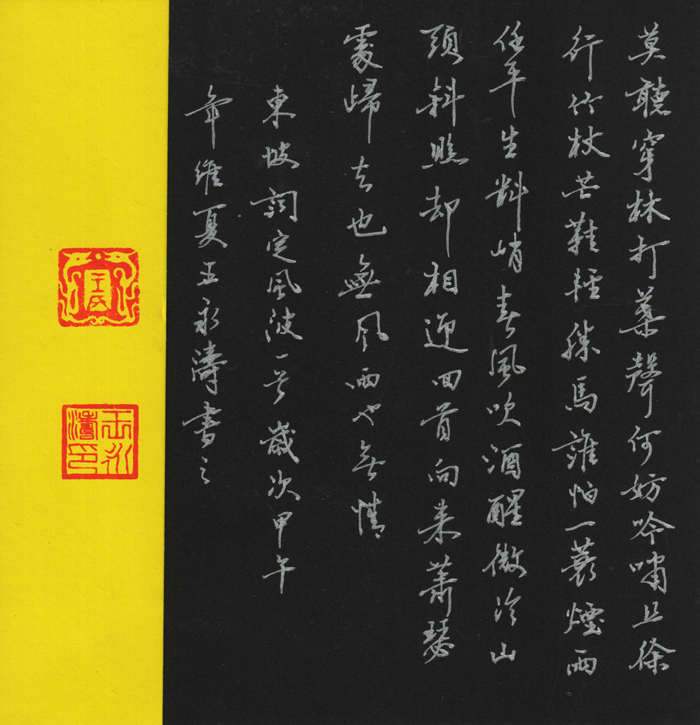 莫聽穿林打葉聲何妨吟嘯且徐
行竹杖芒鞋輕勝馬誰怕一蓑煙雨
任平生料峭春風吹酒醒微冷山
頭斜照却相迎回首向来蕭瑟
處歸去也無風雨也無情
東坡詞定風波一首歲次甲午
年維夏王永濤書之
王氏
王永濤印